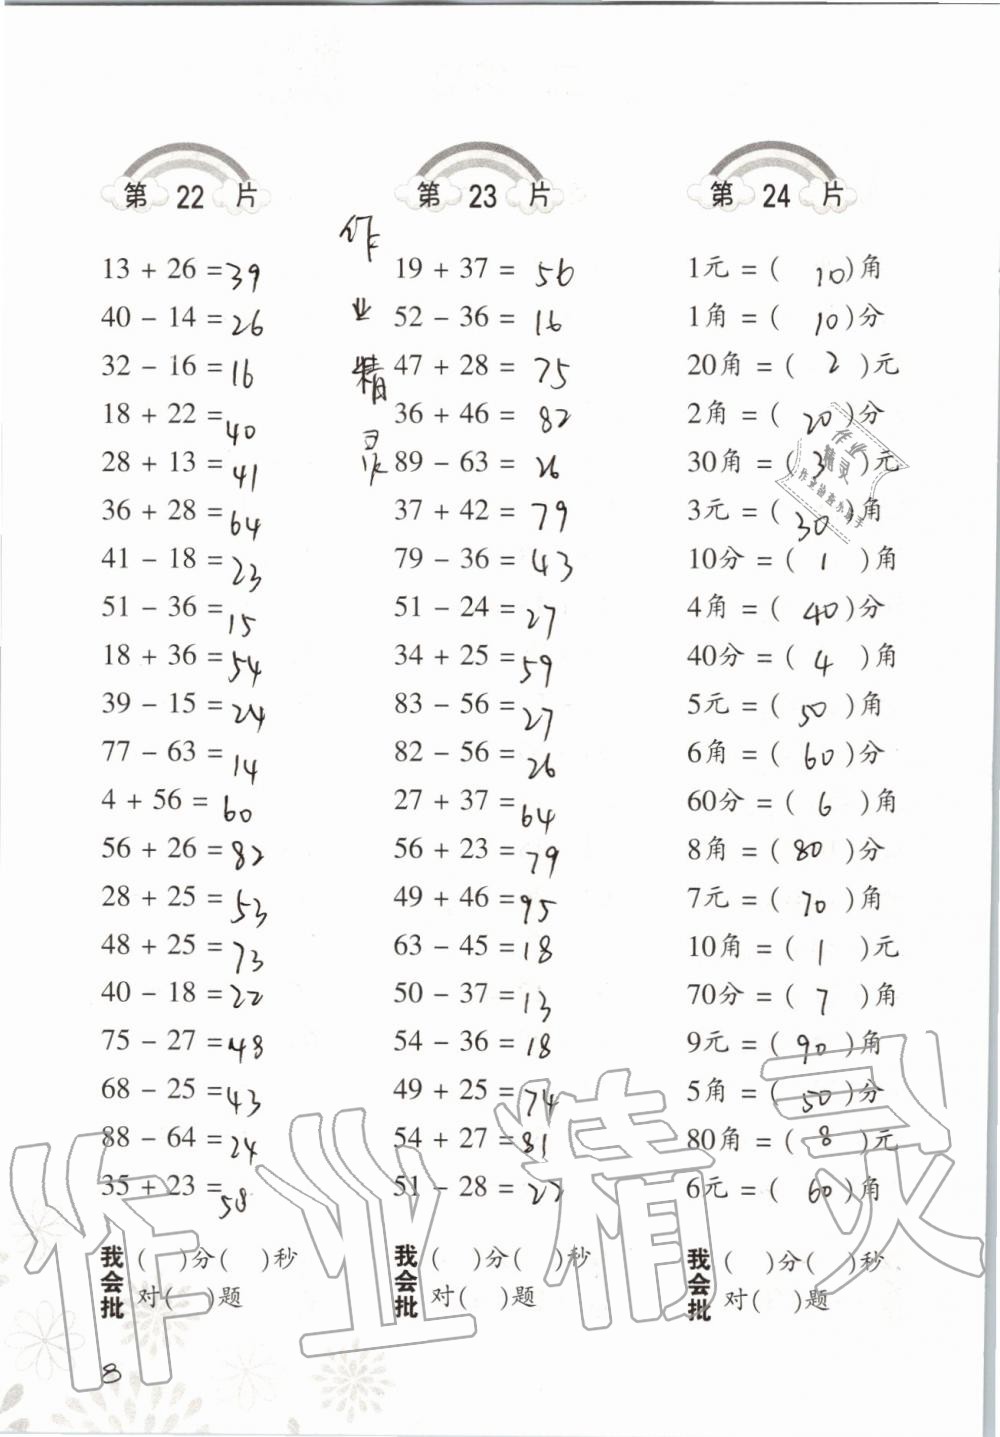 第 22 片
13 + 26 = 39
40 - 14 = 26
32 - 16 = 16
18 + 22 = 40
28 + 13 = 41
36 + 28 = 64
41 - 18 = 23
51 - 36 = 15
18 + 36 = 54
39 - 15 = 24
77 - 63 = 14
4 + 56 = 60
56 + 26 = 82
28 + 25 = 53
48 + 25 = 73
40 - 18 = 22
75 - 27 = 48
68 - 25 = 43
88 - 64 = 24
35 + 23 = 58
我会批
( )分( )秒
对( )题
作业精灵
第 23 片
19 + 37 = 56
52 - 36 = 16
47 + 28 = 75
36 + 46 = 82
89 - 63 = 26
37 + 42 = 79
79 - 36 = 43
51 - 24 = 27
34 + 25 = 59
83 - 56 = 27
82 - 56 = 26
27 + 37 = 64
56 + 23 = 79
49 + 46 = 95
63 - 45 = 18
50 - 37 = 13
54 - 36 = 18
49 + 25 = 74
54 + 27 = 81
51 - 28 =
我会批
( )分( )秒
对( )题
第 24 片
1元 = ( 10 )角
1角 = ( 10 )分
20角 = ( 2 )元
2角 = ( 20 )分
30角 = ( 3 )元
3元 = ( 30 )角
10分 = ( 1 )角
4角 = ( 40 )分
40分 = ( 4 )角
5元 = ( 50 )角
6角 = ( 60 )分
60分 = ( 6 )角
8角 = ( 80 )分
7元 = ( 70 )角
10角 = ( 1 )元
70分 = ( 7 )角
9元 = ( 90 )角
5角 = ( 50 )分
80角 = ( 8 )元
6元 = ( 60 )角
我会批
( )分( )秒
对( )题
作业
精灵
作业检查小助手
作业精灵
8